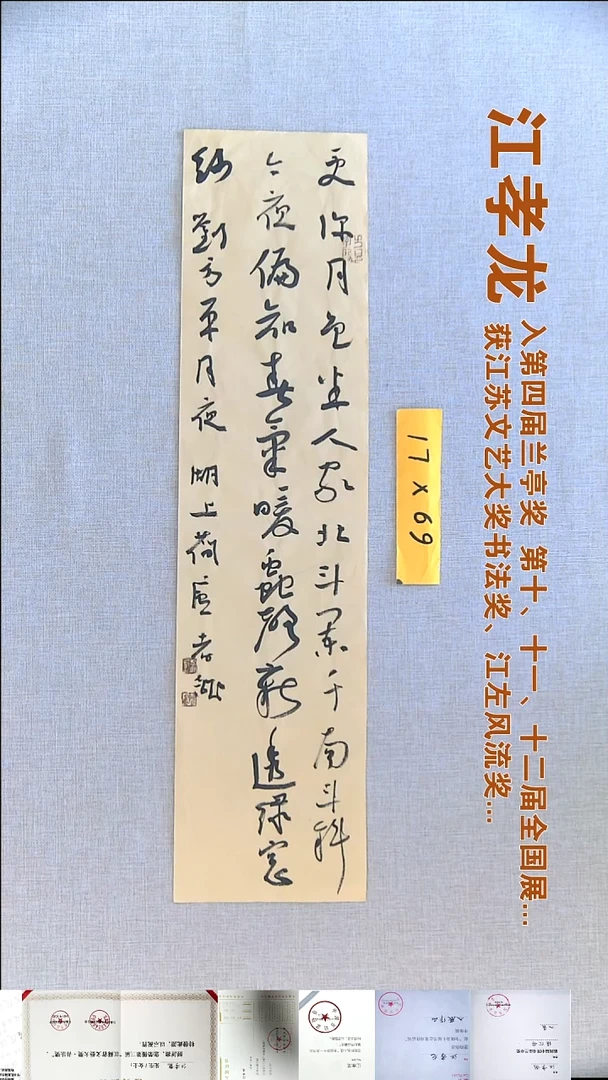 江孝龙
入第四届兰亭奖 第十、十一、十二届全国展...
获江苏文艺大奖书法奖、江左风流奖...
17x69
更深月色半人家北斗闌干南斗斜
今夜偏知春氣暖蟲聲新透綠窓
紗 劉方平月夜 湖上荷廬孝龍